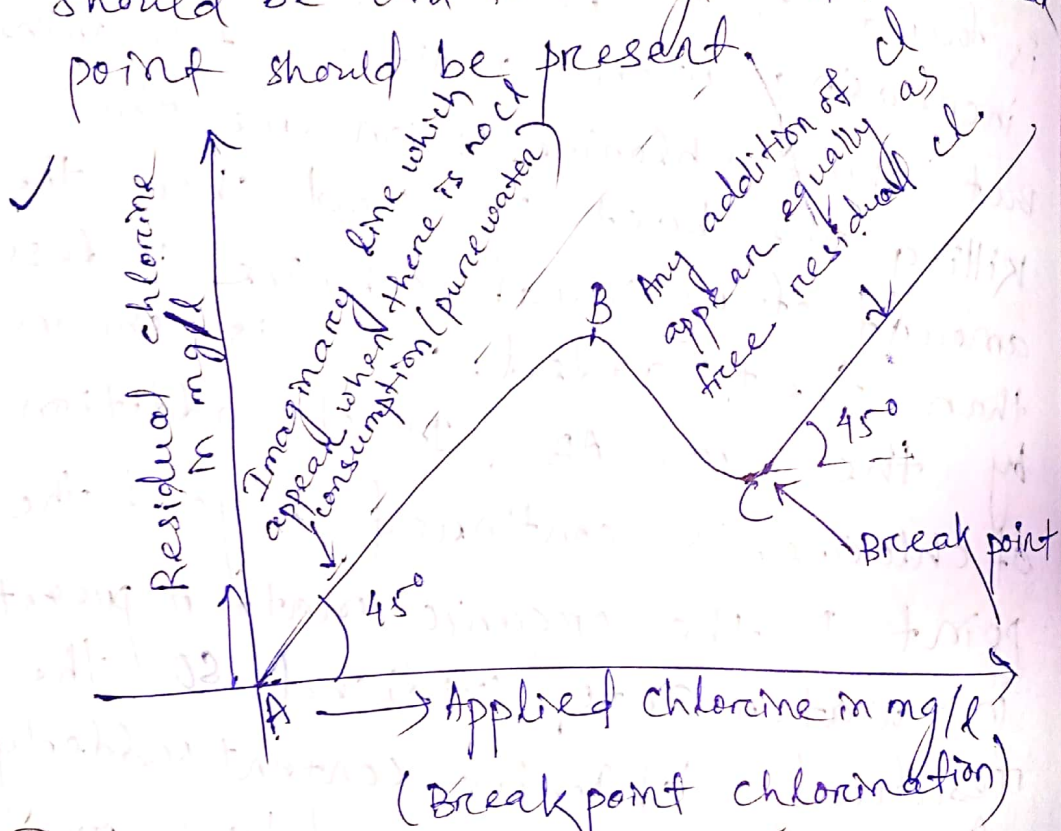 should be
point should be present.
Residual chlorine
in mg/l
Imaginary line which
appear when there is no cl
consumption (pure water)
B
Any addition of cl
appear equally as
free residual cl.
45°
C
Break point
45°
A
Applied chlorine in mg/l
(Break point chlorination)